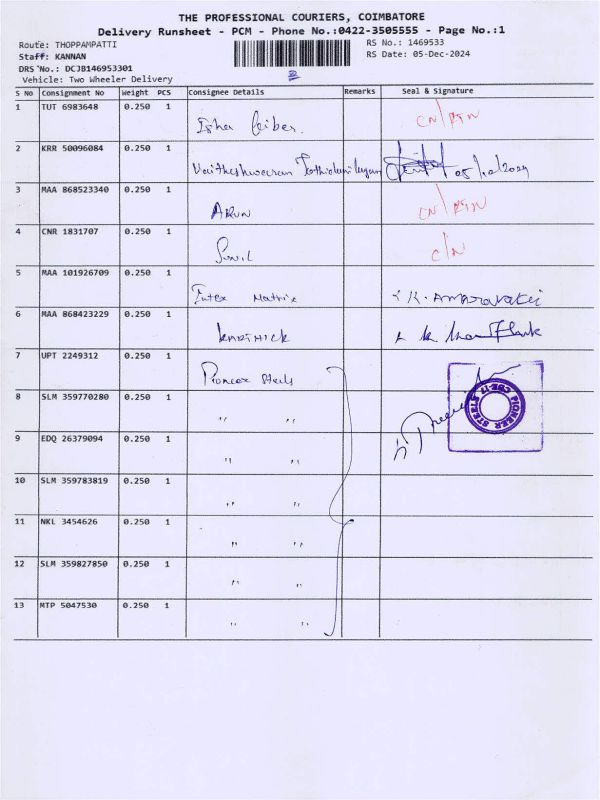 THE PROFESSIONAL COURIERS, COIMBATORE
Delivery Runsheet - PCM - Phone No.:0422-3505555 - Page No.:1
Route: THOPPAMPATTI RS No.: 1469533
Staff: KANNAN RS Date: 05-Dec-2024
DRS No.: DCJB146953301
Vehicle: Two Wheeler Delivery
S No Consignment No Weight PCS Consignee Details Remarks Seal & Signature
1 TUT 6983648 0.250 1
CN/RTN
2 KRR 50096084 0.250 1
05/12/2024
3 MAA 868523340 0.250 1
ARUN CN/RTN
4 CNR 1831707 0.250 1
Sunil C/N
5 MAA 101926709 0.250 1
Intex Matrix K. AMARAVATHI
6 MAA 868423229 0.250 1
KARTHICK
7 UPT 2249312 0.250 1
Pioneer Steels
PIONEER STEELS CBE-17
8 SLM 359770280 0.250 1
" "
9 EDQ 26379094 0.250 1
" "
10 SLM 359783819 0.250 1
" "
11 NKL 3454626 0.250 1
" "
12 SLM 359827850 0.250 1
" "
13 MTP 5047530 0.250 1
" "